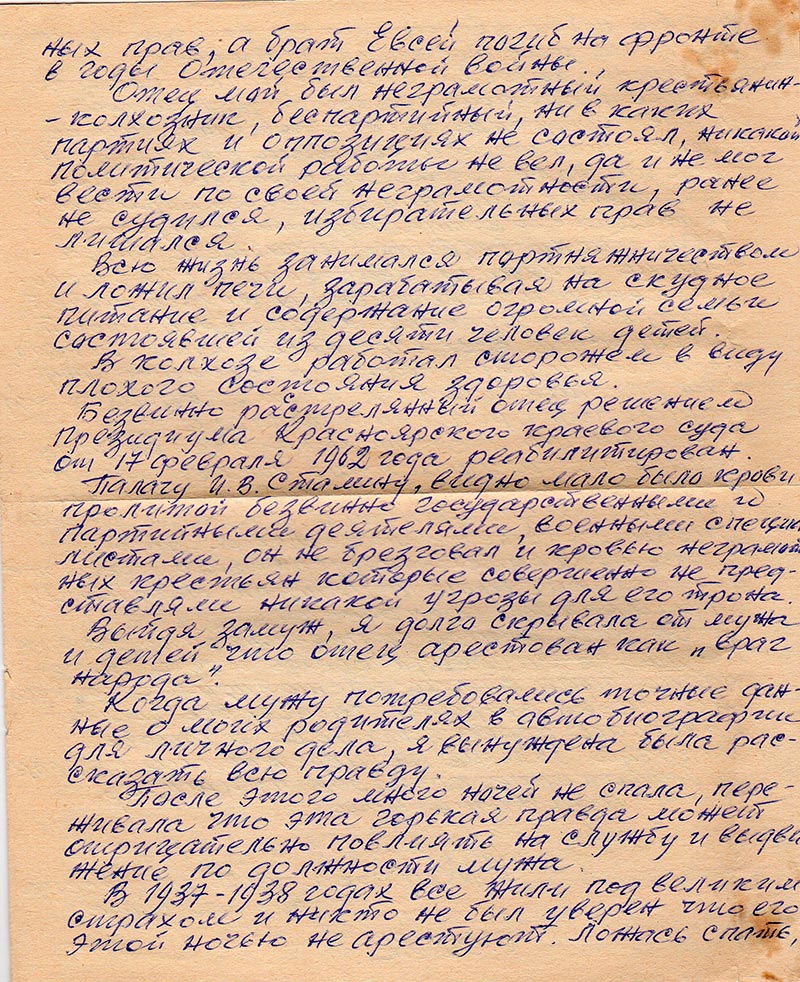 ных прав, а брат Евсей погиб на фронте
в годы Отечественной войны.
Отец мой был неграмотный крестьянин-
-колхозник, беспартийный, ни в каких
партиях и оппозициях не состоял, никакой
политической работы не вел, да и не мог
вести по своей неграмотности, ранее
не судился, избирательных прав не
лишался.
Всю жизнь занимался портняжничеством
и ложил печи, зарабатывая на скудное
питание и содержание огромной семьи
состоявшей из десяти человек детей.
В колхозе работал сторожем в виду
плохого состояния здоровья.
Безвинно растрелянный отец решением
Президиума Красноярского краевого суда
от 17 февраля 1962 года реабилитирован.
Палачу И. В. Сталину, видно мало было крови
пролитой безвинно государственными и
партийными деятелями, военными специа
листами, он не брезговал и кровью неграмот
ных крестьян которые совершенно не пред-
ставляли никакой угрозы для его трона.
Выйдя замуж, я долго скрывала от мужа
и детей что отец арестован как „враг
народа".
Когда мужу потребовались точные дан-
ные о моих родителях в автобиографии
для личного дела, я вынуждена была рас-
сказать всю правду.
После этого много ночей не спала, пере-
живала что эта горькая правда может
отрицательно повлиять на службу и выдви
жение по должности мужа.
В 1937-1938 годах все жили под великим
страхом и никто не был уверен что его
этой ночью не арестуют. Ложась спать,